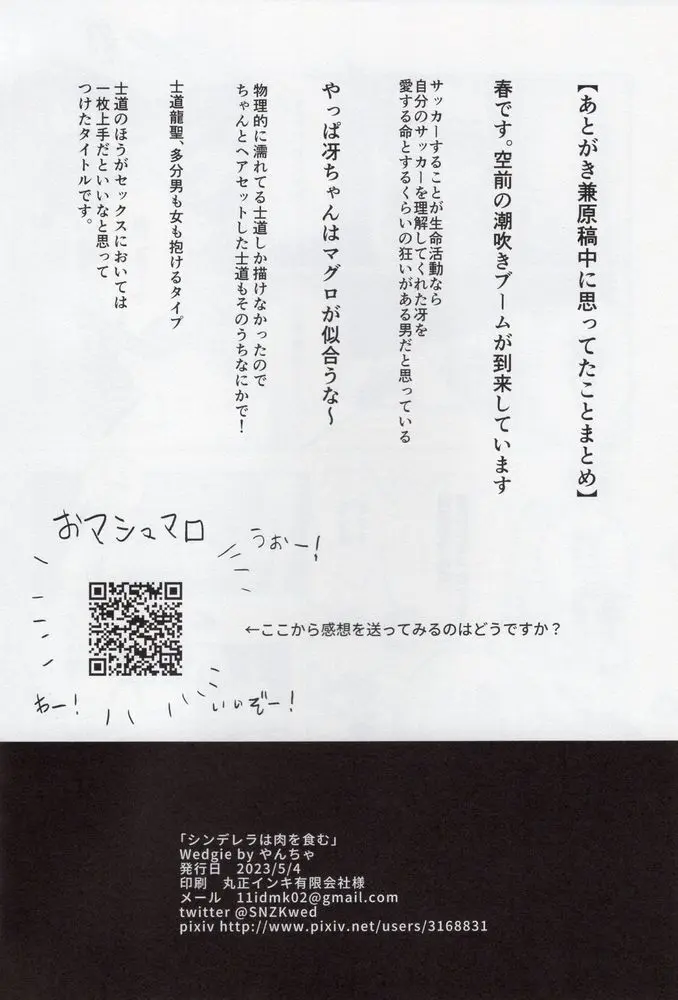 【あとがき兼原稿中に思ってたことまとめ】
春です。空前の潮吹きブームが到来しています
サッカーすることが生命活動なら
自分のサッカーを理解してくれた冴を
愛する命とするくらいの狂いがある男だと思っている
やっぱ冴ちゃんはマグロが似合うな～
物理的に濡れてる士道しか描けなかったので
ちゃんとヘアセットした士道もそのうちなにかで！
士道龍聖、多分男も女も抱けるタイプ
士道のほうがセックスにおいては
一枚上手だといいなと思って
つけたタイトルです。
おマシュマロ
うおー！
←ここから感想を送ってみるのはどうですか？
わー！
いいぞー！
「シンデレラは肉を食む」
Wedgie by やんちゃ
発行日　2023/5/4
印刷　丸正インキ有限会社様
メール　11idmk02@gmail.com
twitter @SNZKwed
pixiv http://www.pixiv.net/users/3168831